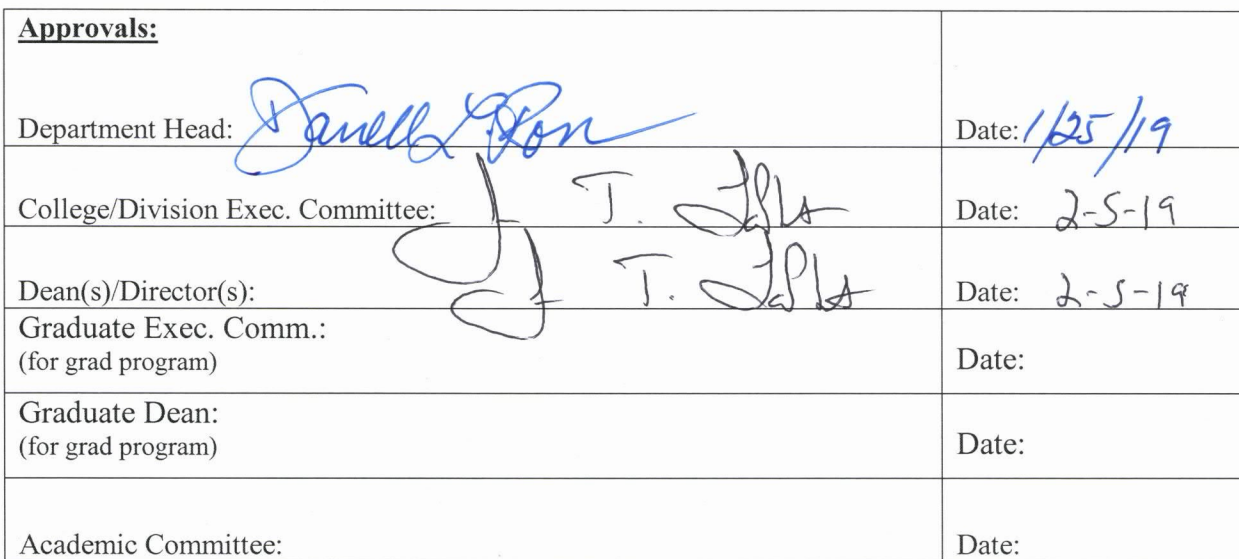 Approvals:
Department Head: Date: 1/25/19
College/Division Exec. Committee: J T. Date: 2-5-19
Dean(s)/Director(s): J T. Date: 2-5-19
Graduate Exec. Comm.:
(for grad program) Date:
Graduate Dean:
(for grad program) Date:
Academic Committee: Date: